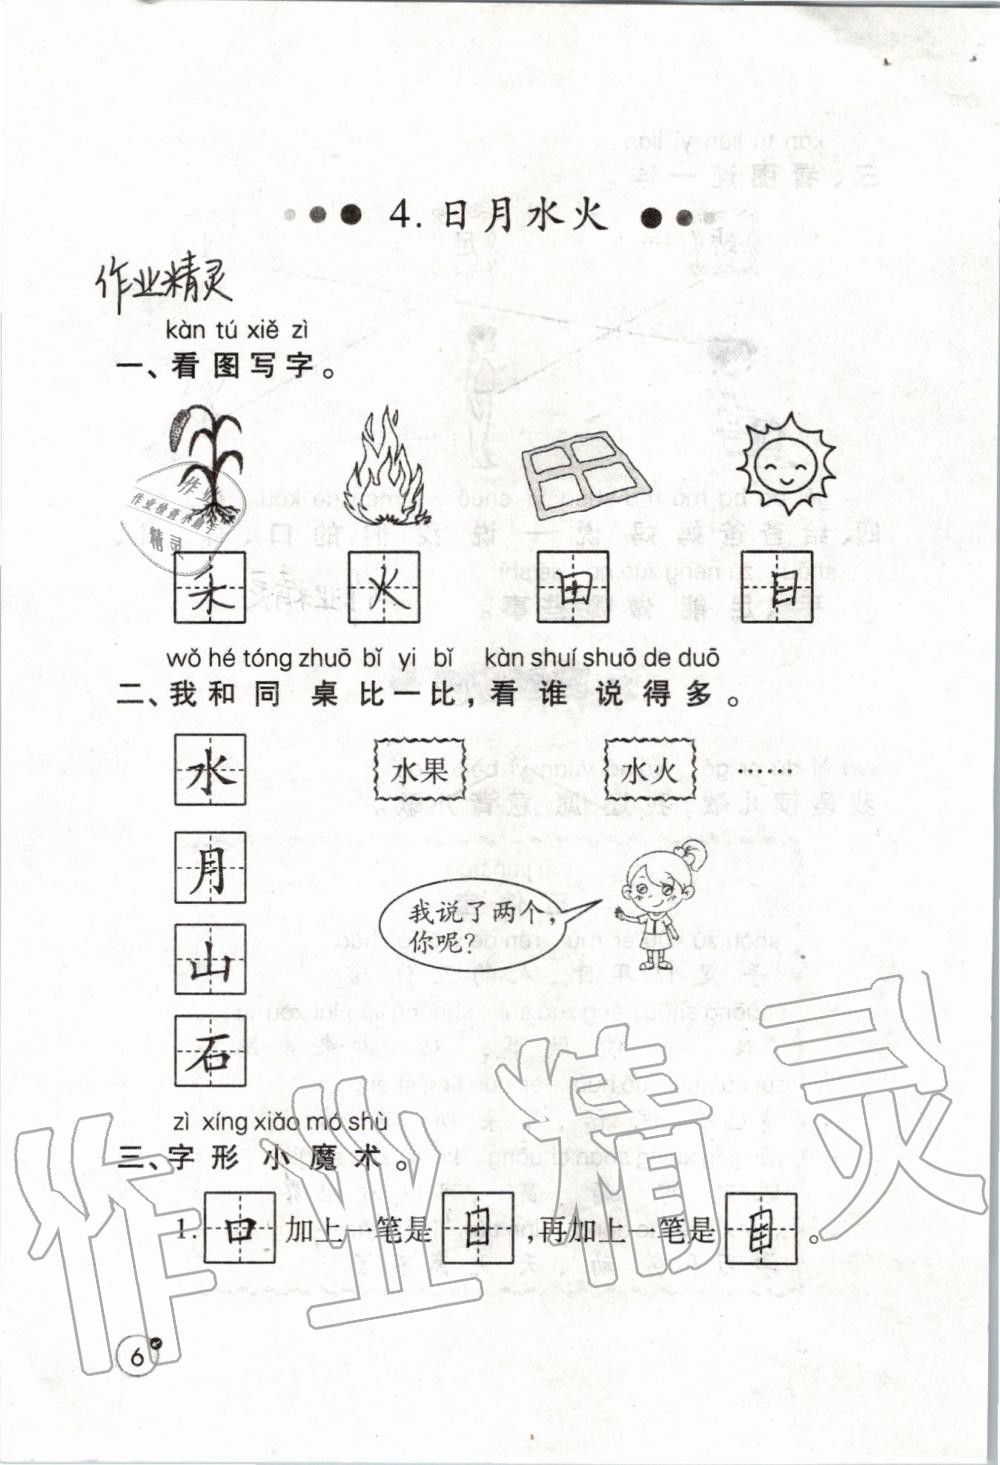 4.日月水火
作业精灵
kàn tú xiě zì
一、看图写字。
作业
作业检查小助手
精灵
禾 火 田 日
wǒ hé tóng zhuō bǐ yi bǐ kàn shuí shuō de duō
二、我和同桌比一比,看谁说得多。
水 水果 水火 ……
月
我说了两个,
你呢?
山
石
zì xíng xiǎo mó shù
三、字形小魔术。
1. 口 加上一笔是 日 ,再加上一笔是 目 。
6
作业精灵